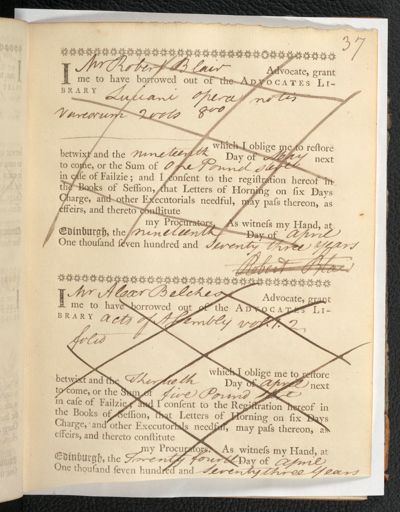 37
I Mr Robert Blair Advocate, grant
me to have borrowed out of the ADVOCATES LI-
BRARY Luciani opera notis
Variorum 2 vols 8vo
which I oblige me to reſtore
betwixt and the nineteenth Day of May next
to come, or the Sum of One Pound
in caſe of Failzie; and I conſent to the regiſtration hereof in
the Books of Seſſion, that Letters of Horning on ſix Days
Charge, and other Executorials needful, may paſs thereon, as
effeirs, and thereto conſtitute
my Procurators. As witneſs my Hand, at
Edinburgh, the nineteenth Day of April
One thouſand ſeven hundred and Seventy three years
Robert Blair
I Mr Alexr Belches Advocate, grant
me to have borrowed out of the ADVOCATES LI-
BRARY Acts of Assembly vol. 1. 2
folio
which I oblige me to reſtore
betwixt and the Day of April next
to come, or the Sum of five Pound
in caſe of Failzie; and I conſent to the Regiſtration hereof in
the Books of Seſſion, that Letters of Horning on ſix Days
Charge, and other Executorials needful, may paſs thereon, as
effeirs, and thereto conſtitute
my Procurators. As witneſs my Hand, at
Edinburgh, the Twenty fourth Day of April
One thouſand ſeven hundred and Seventy three Years